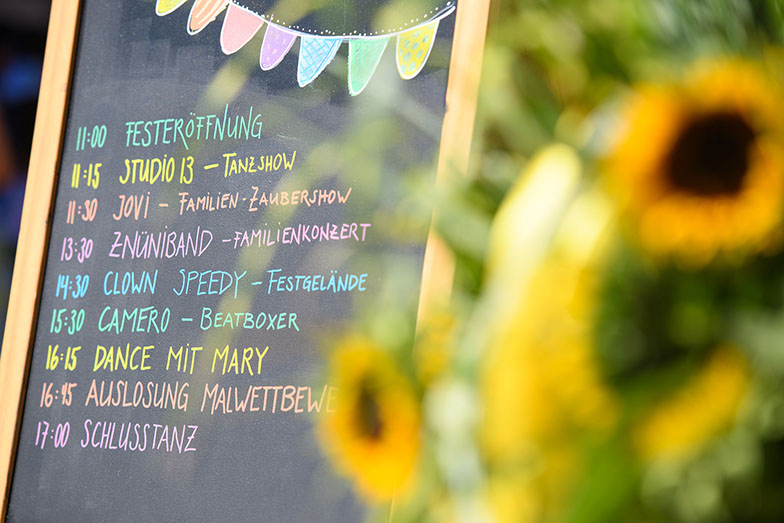 11:00 FESTERÖFFNUNG
11:15 STUDIO 13 – TANZSHOW
11:30 JOVI – FAMILIEN-ZAUBERSHOW
13:30 ZNÜNIBAND – FAMILIENKONZERT
14:30 CLOWN SPEEDY – FESTGELÄNDE
15:30 CAMERO – BEATBOXER
16:15 DANCE MIT MARY
16:45 AUSLOSUNG MALWETTBEWE
17:00 SCHLUSSTANZ